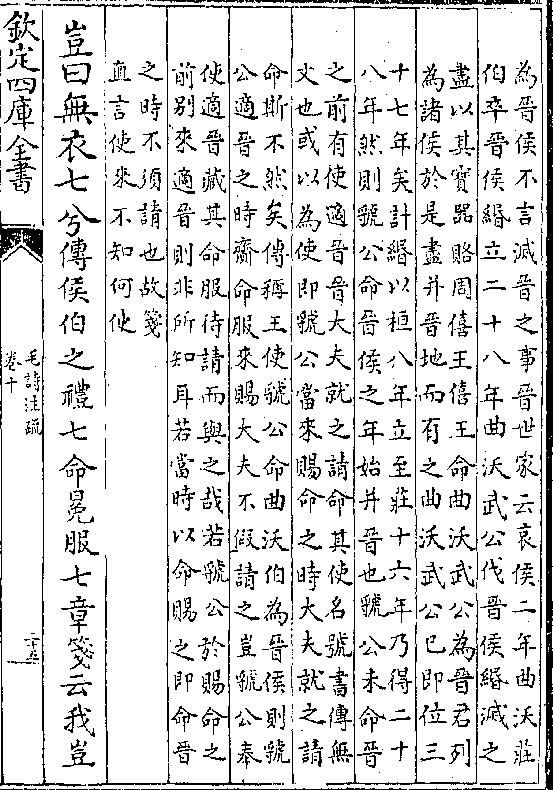 為晉侯不言滅晉之事晉世家云哀侯二年曲沃莊
伯卒晉侯緡立二十八年曲沃武公伐晉侯緡滅之
盡以其寶器賂周僖王僖王命曲沃武公為晉君列
為諸侯於是盡并晉地而有之曲沃武公已即位三
十七年矣計緡以桓八年立至莊十六年乃得二十
八年然則虢公命晉侯之年始并晉也虢公未命晉
之前有使適晉晉大夫就之請命其使名號書傳無
文也或以為使即虢公當來賜命之時大夫就之請
命斯不然矣傳稱王使虢公命曲沃伯為晉侯則虢
公適晉之時齎命服來賜大夫不假請之豈虢公奉
使適晉藏其命服待請而與之哉若虢公於賜命之
前别來適晉則非所知耳若當時以命賜之即命晉
之時不須請也故箋
直言使來不知何使
豈曰無衣七兮傳侯伯之禮七命冕服七章箋云我豈
欽定四庫全書
毛詩注疏
卷十
二十五